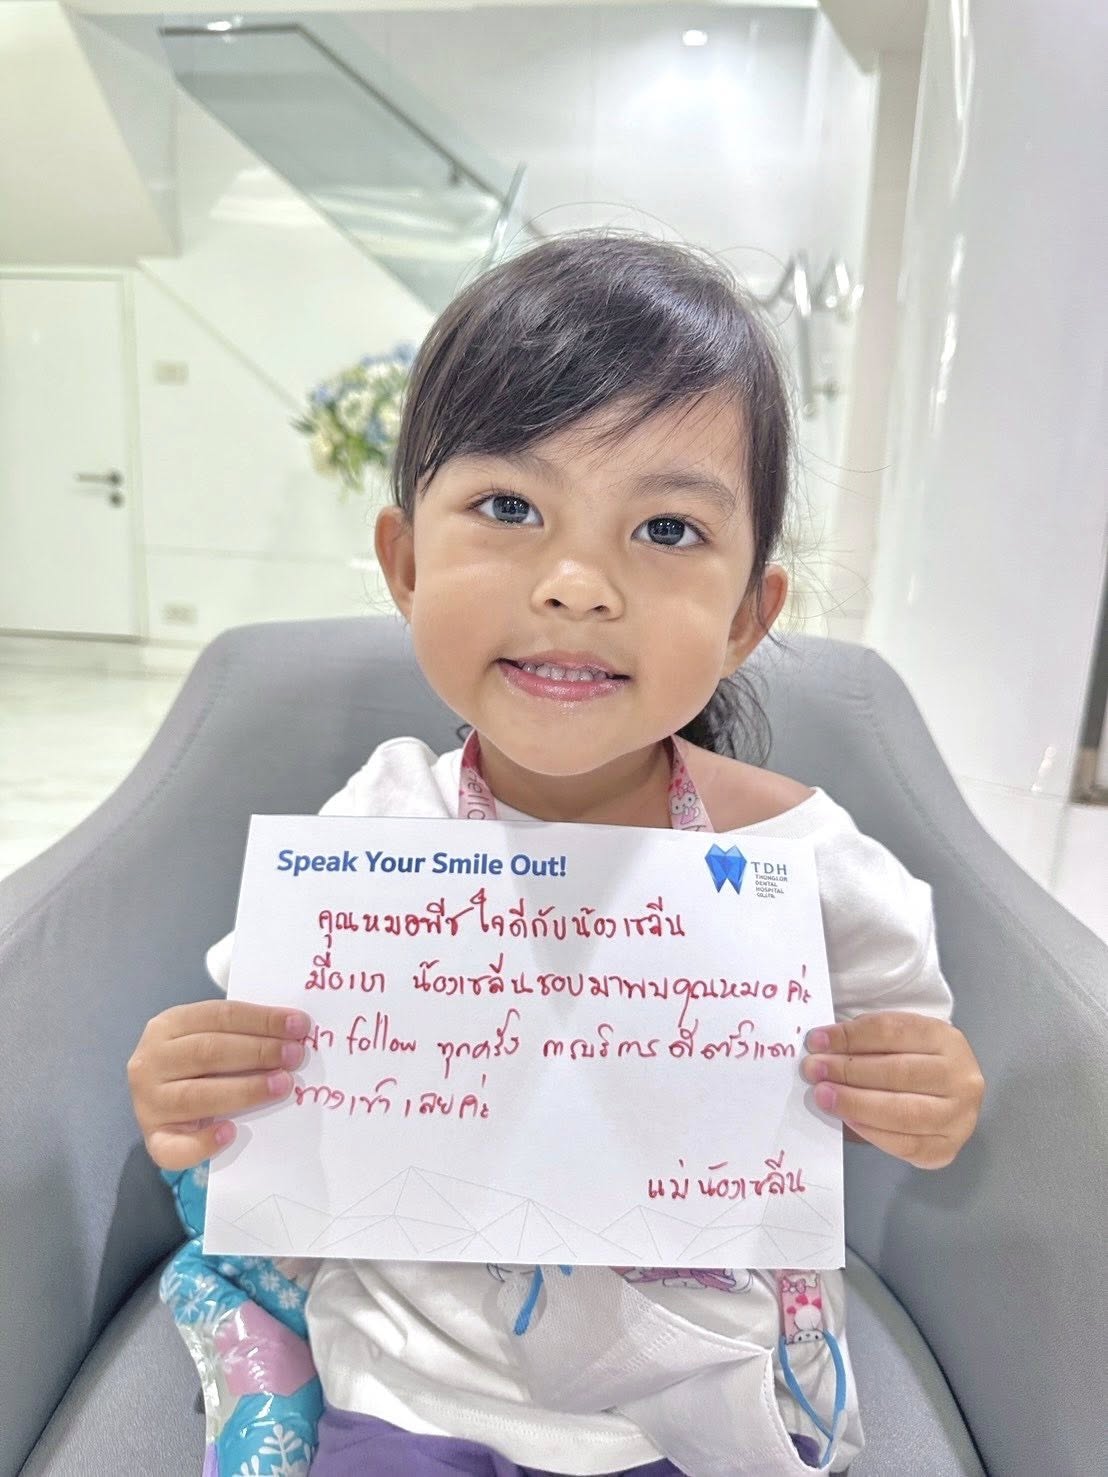 Speak Your Smile Out!
TDH
THONGLOR
DENTAL
HOSPITAL
CO.,LTD.
คุณหมอพีช ใจดีกับน้องเซลีน
มือเบา น้องเซลีนชอบมาพบคุณหมอ ค่ะ
มา follow ทุกครั้ง การบริการ ดีตั้งแต่
ทางเข้า เลยค่ะ
แม่น้องเซลีน
ello